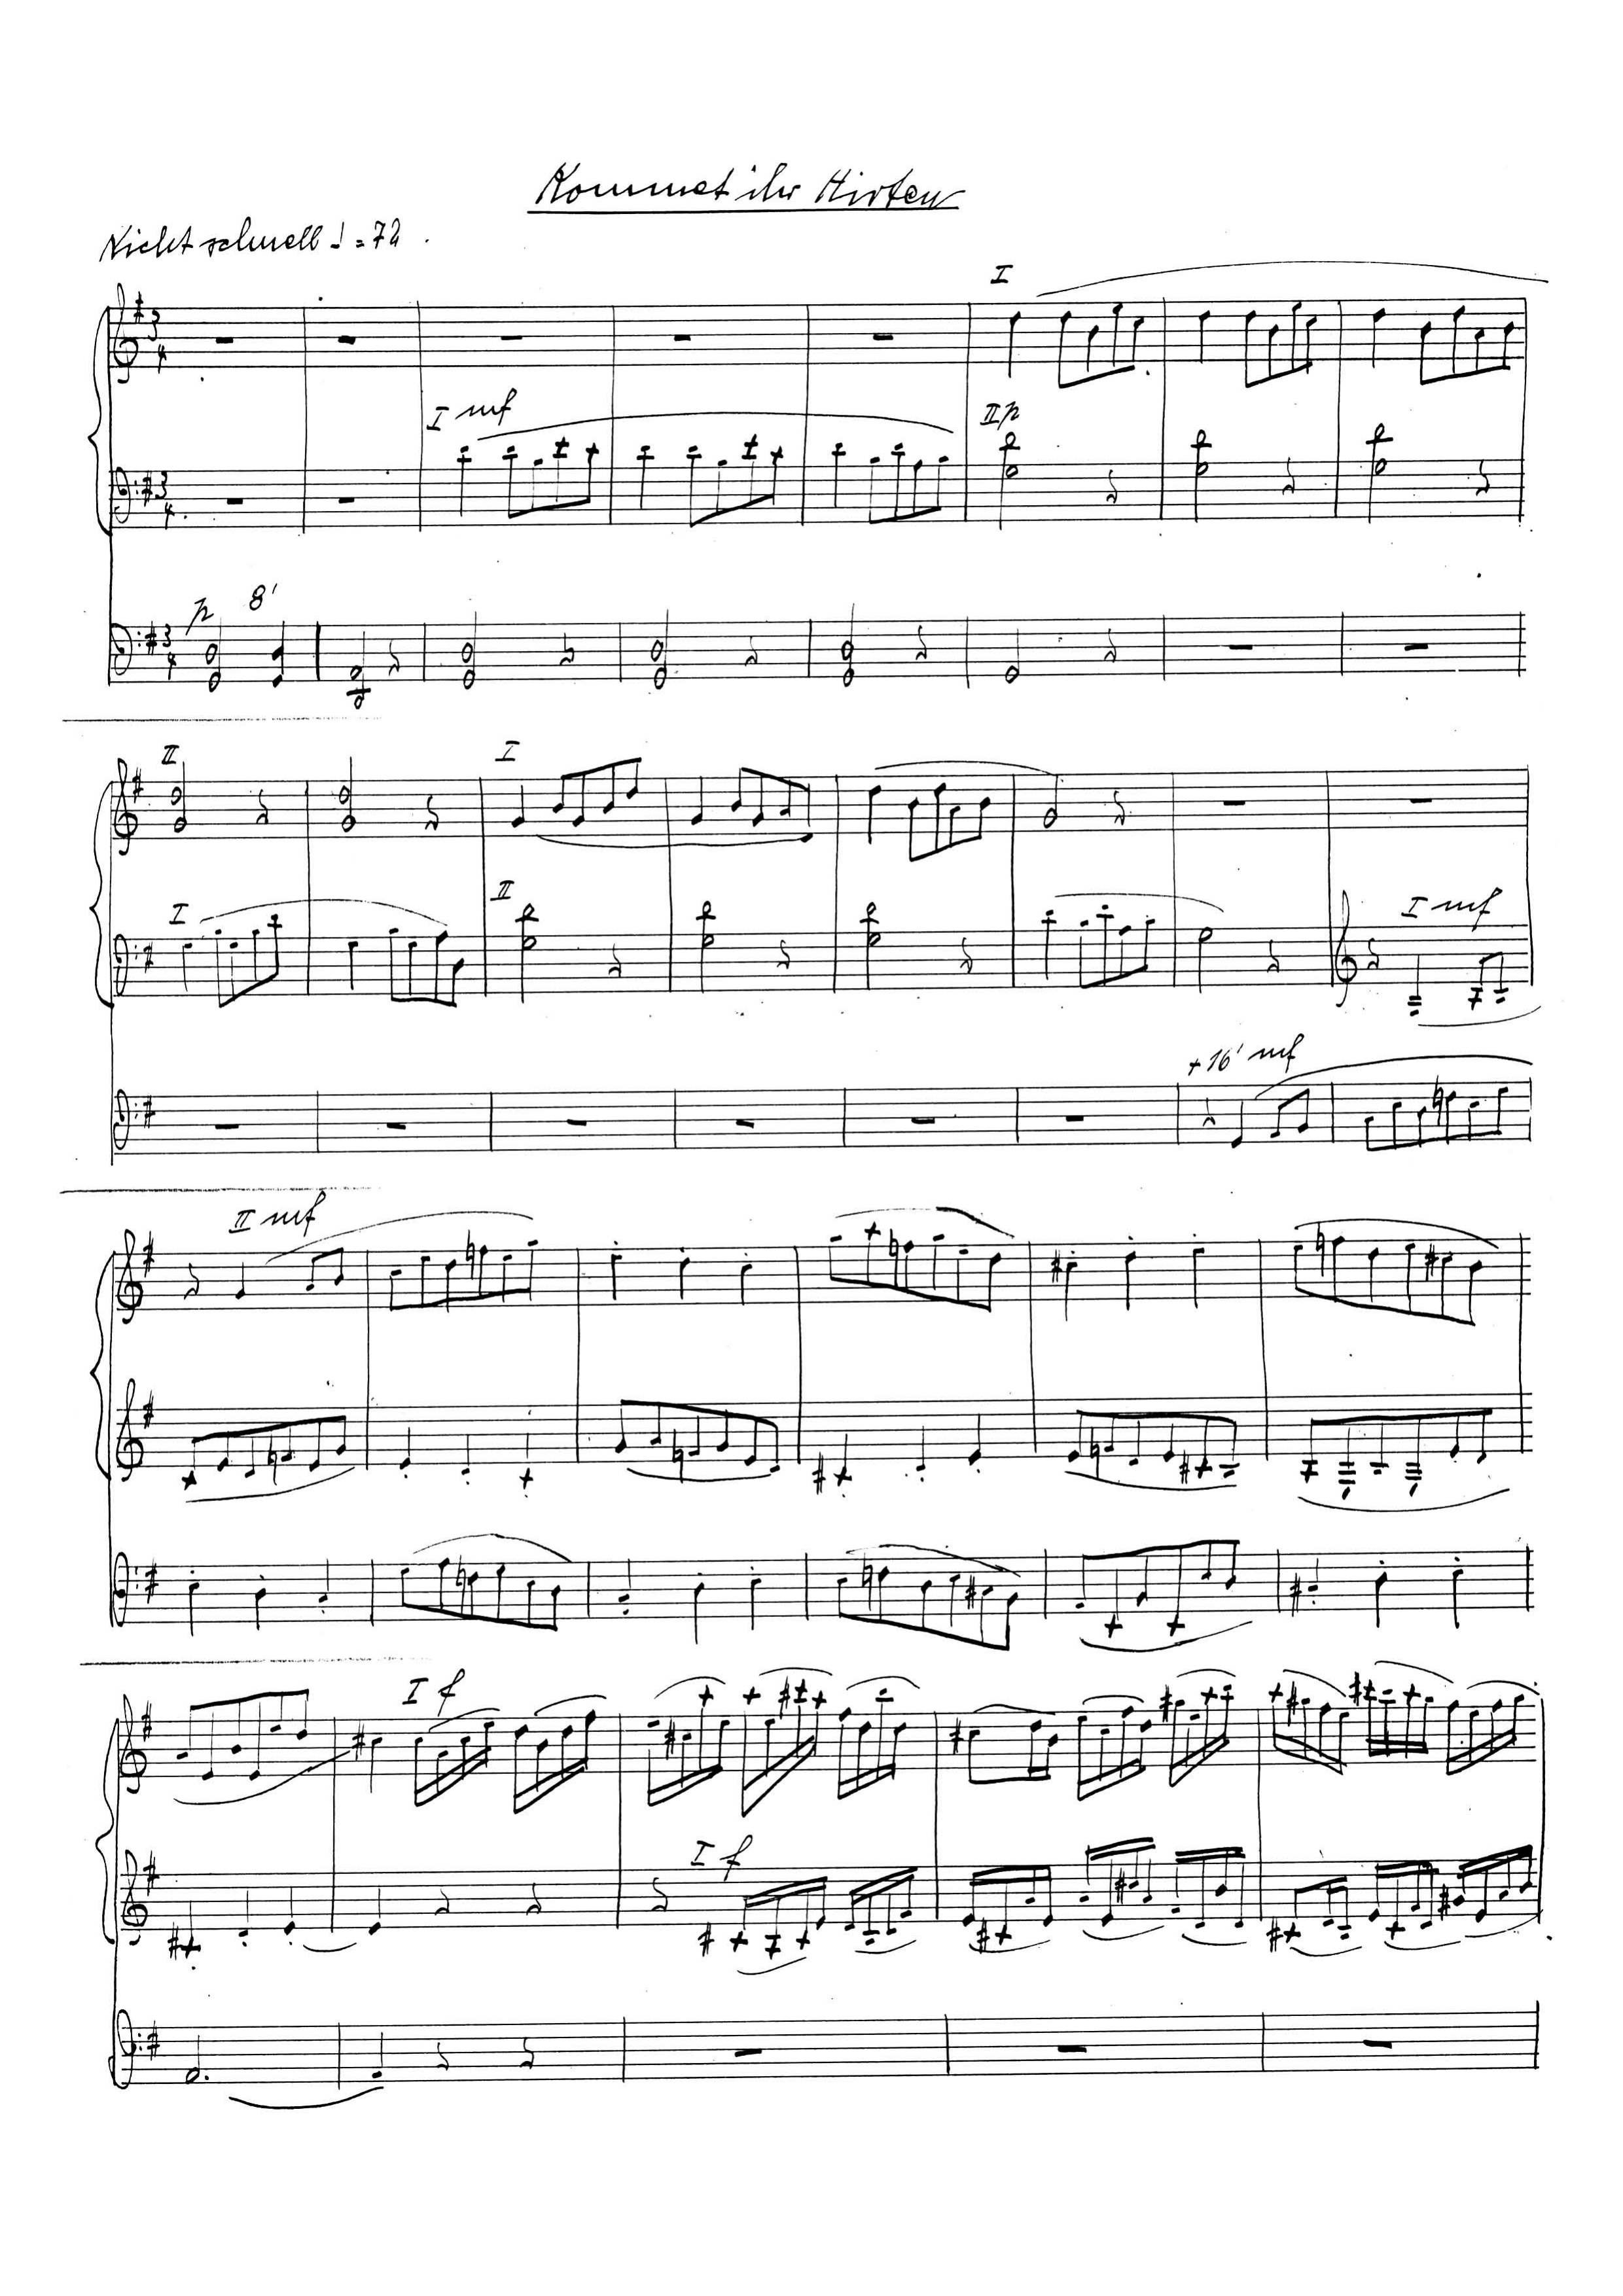 Kommet ihr Hirten
Nicht schnell ♩ = 72
I
3
4
I mf
II p
3
4
p 8'
3
4
II
I
I
II
I mf
+ 16' mf
II mf
I f
I f